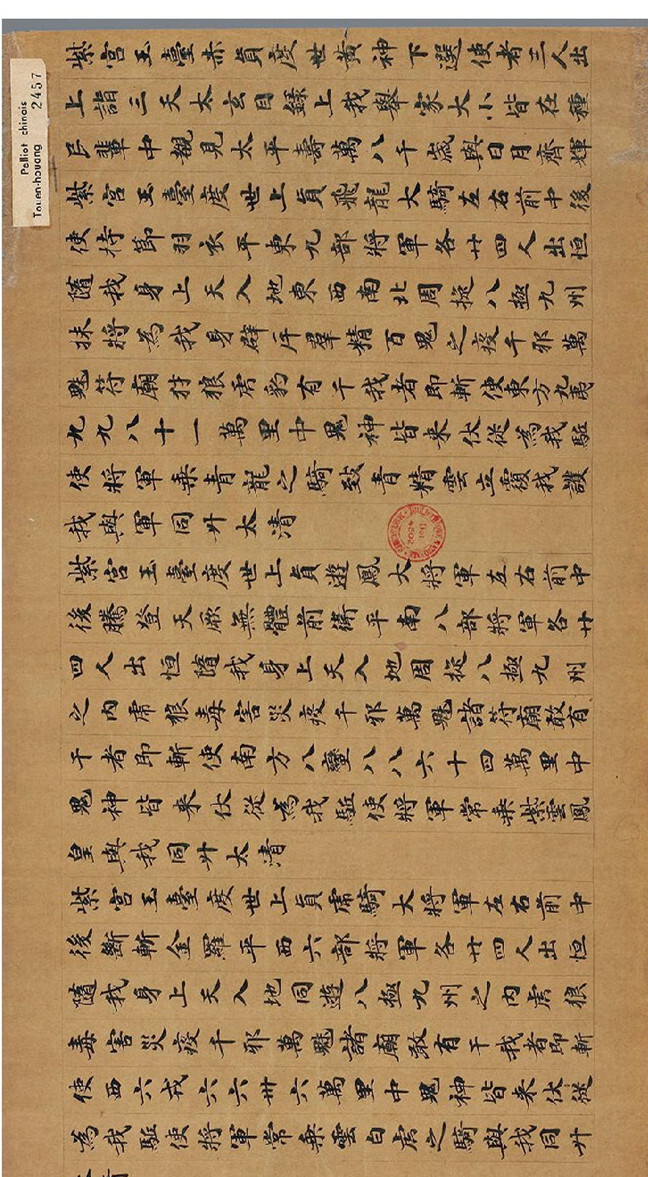 Pelliot chinois
Touen-houang 2457
紫宮玉臺赤貞度世黃神下選使者二人出
上詣三天太玄目錄上我舉家大小皆在種
民輩中覩見太平壽萬八千歲與日月齊輝
紫宮玉臺度世上貞飛龍大騎左右前中後
使持節羽衣平東九部將軍各廿四人出恒
隨我身上天入地東西南北周捉八極九州
將為我身辟斥羣精百鬼之疫千邪萬
魅符廟狼虎豹有干我者即斬使東方九夷
九九八十一萬里中鬼神皆来伏從為我駈
使將軍乗青龍之騎致青精雲立覆我護
我與軍同升太清
紫宮玉臺度世上貞遊鳳大將軍左右前中
後騰登天厥無體前衛平南八部將軍各廿
四人出恒隨我身上天入地周捉八極九州
之内虎狼毒害災疫千邪萬魅諸符廟敢有
干者即斬使南方八蠻八八六十四萬里中
鬼神皆来伏從為我駈使將軍常乗紫雲鳳
皇與我同升太清
紫宮玉臺度世上貞虎騎大將軍左右前中
後斷斬金羅平西六部將軍各廿四人出恒
隨我身上天入地同遊八極九州之内虎狼
毒害災疫千邪萬魅諸廟敢有干我者即斬
使西六戎六六卅六萬里中鬼神皆来伏從
為我駈使將軍常乗雲白虎之騎與我同升